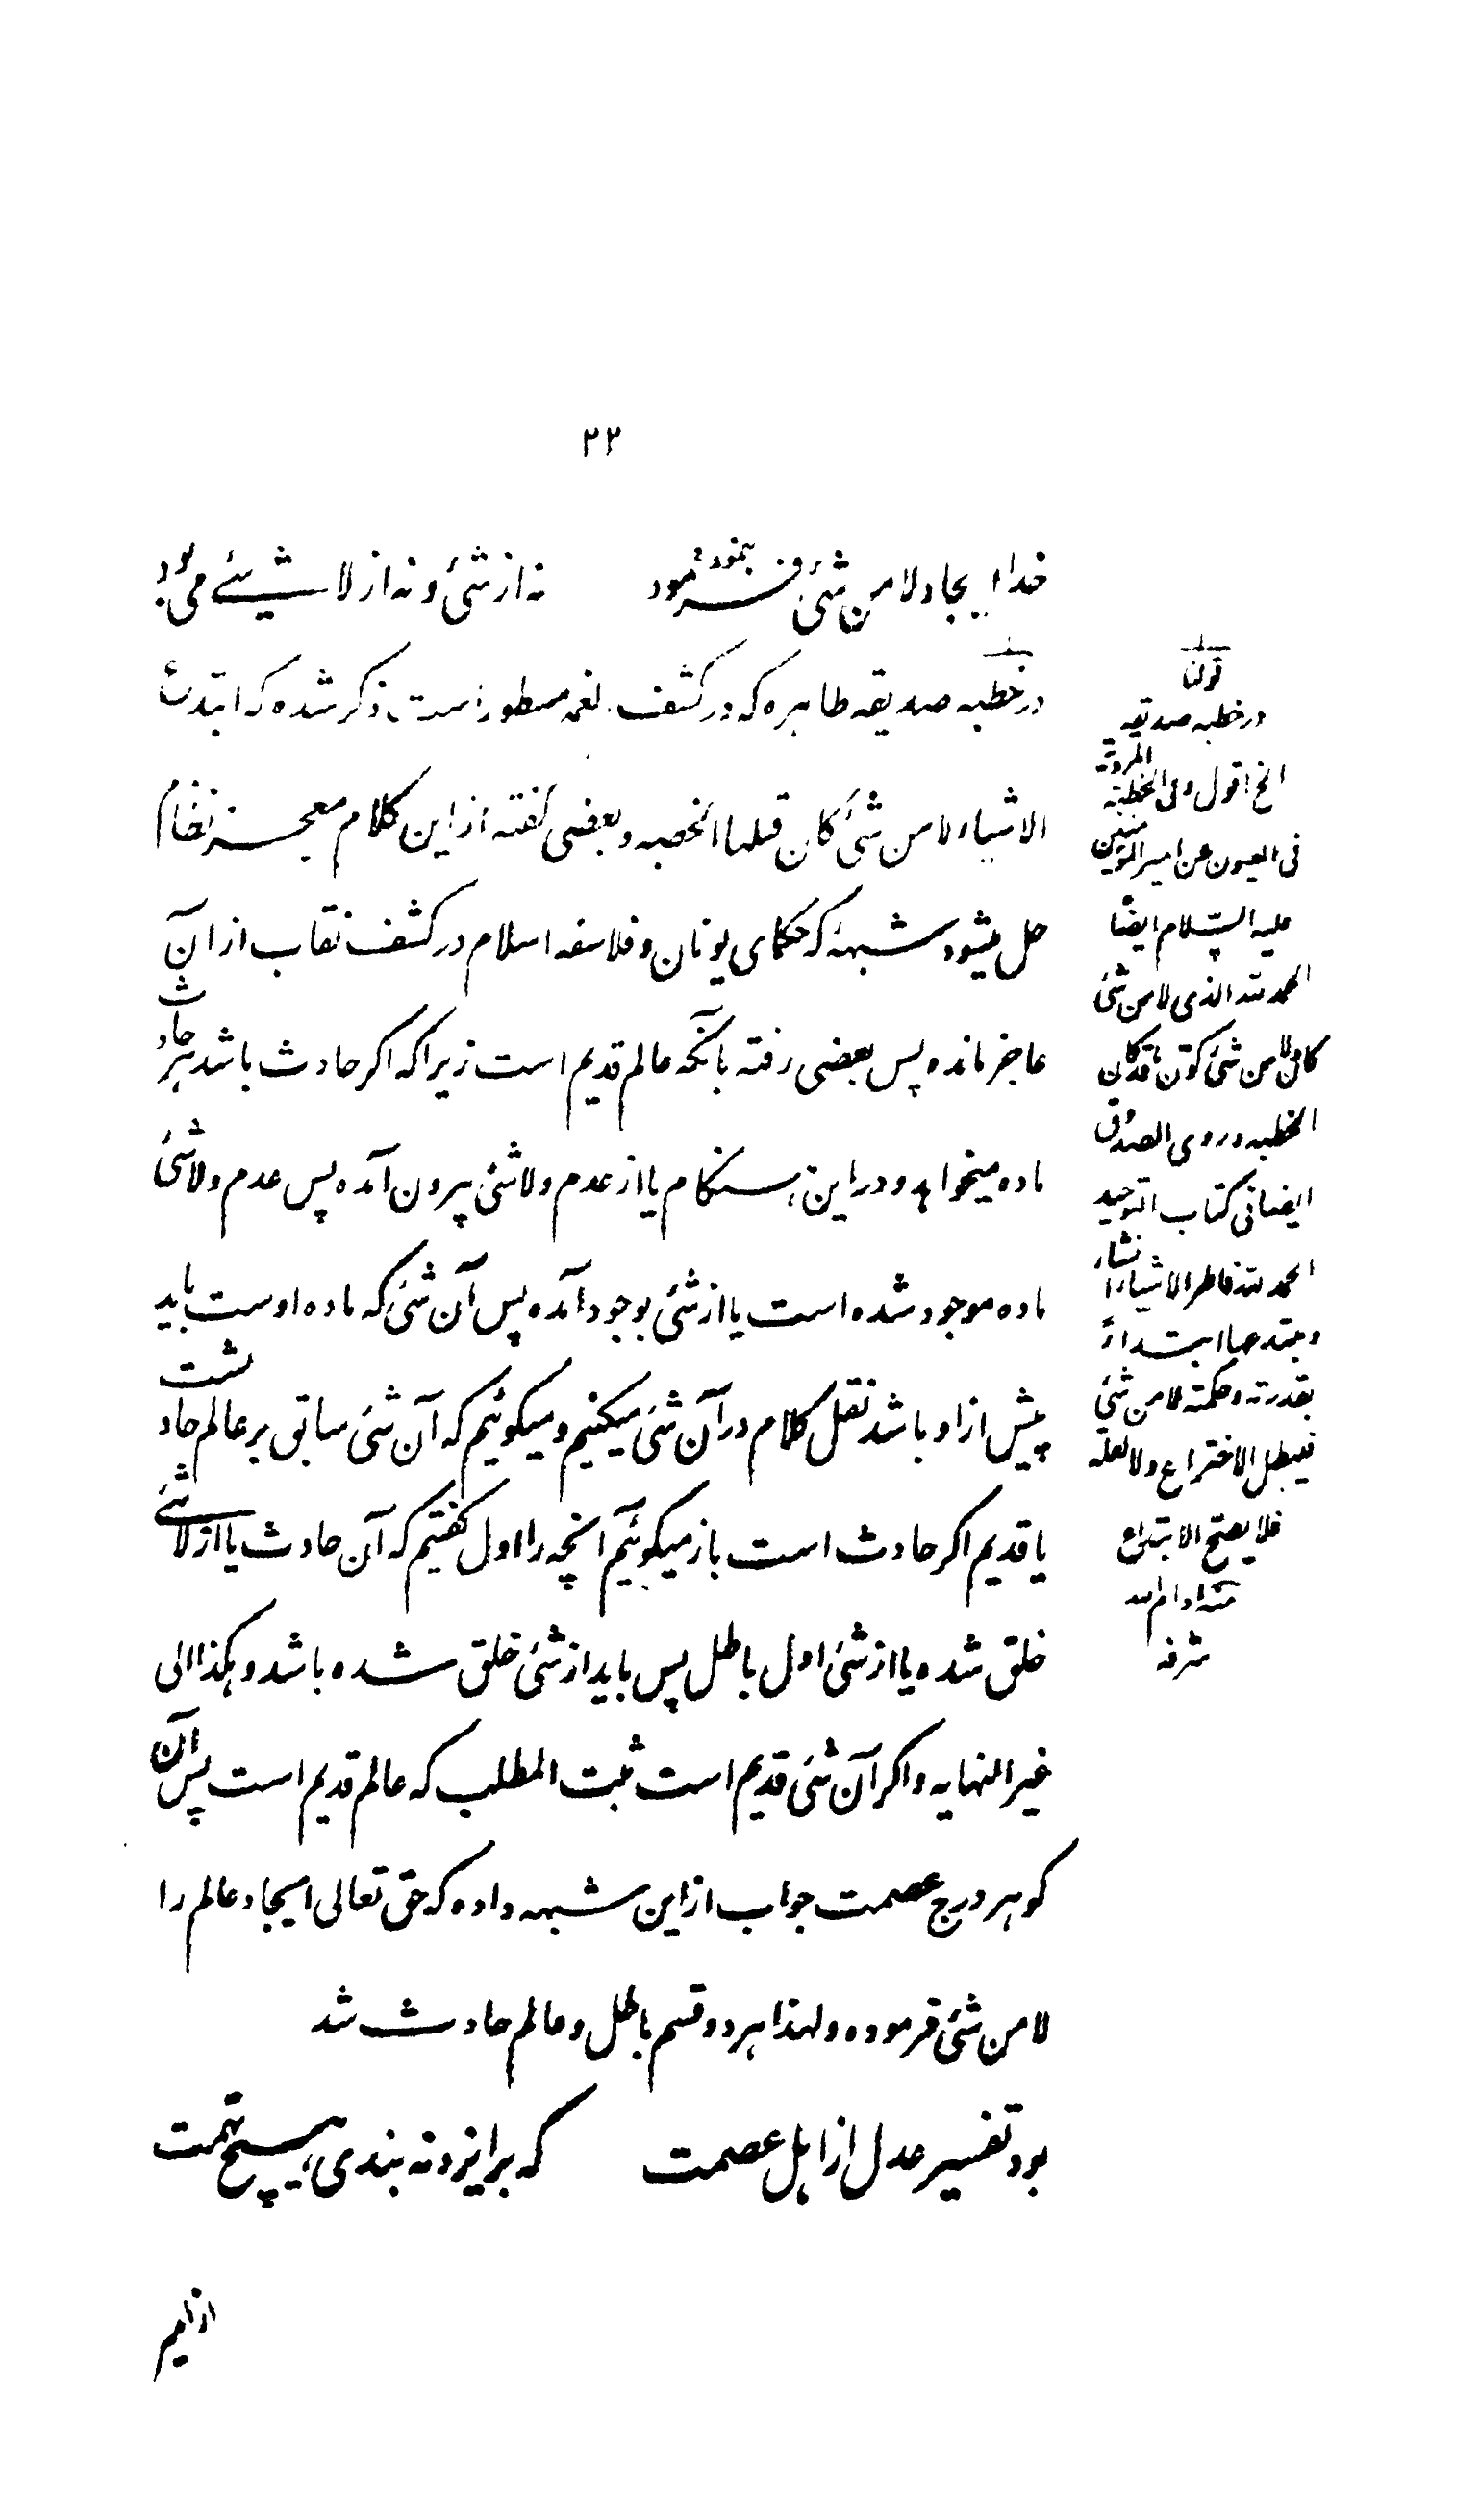 ۲۲
خدا ایجاد لا من شئ فرمود نه از شئ و نه از لا شیئے می بود
در خطبه صدیقه طاهره که در کشف الغمه مسطور است ذکر شده که ابتدع
الاشیاء لا من شئ کان قبلها الخطبه و بعضی گفته از این کلام معجز نظام
حل میشود شبهۀ که حکمای یونان و فلاسفه اسلام در کشف نقاب از آن
عاجز مانده پس بعضی رفته بآنکه عالم قدیم است زیرا که اگر حادث باشد هر حادث
ماده میخواهد و در این هنگام یا از عدم و لاشئ بیرون آمده پس عدم و لاشئ
ماده موجود شده است یا از شئ بوجود آمده پس آن شئ که ماده اوست باید
پیش از او باشد نقل کلام در آن شئ میکنیم و میگوئیم که آن شئ سابق بر عالم حادث است
یا قدیم اگر حادث است باز میگوئیم آنچه را اول گفتیم که آن حادث یا از لاشئے
خلق شده یا از شئ اول باطل پس باید از شئ خلق شده باشد و هکذا الی
غیر النهایه و اگر آن شئ قدیم است ثبت المطلب که عالم قدیم است پس آن
گوهر درج عصمت جواب از این شبهه داده که حق تعالی ایجاد عالم را
لا من شئ فرموده و لهذا هر دو قسم باطل و عالم حادث شد
بود تفسیر عدل از اهل عصمت که بر ایزد نه بندی هیچ تهمت
قوله
در خطبه صدیقه
الخ اقول و فی الخطبة المرویة
فی العیون عن امیر المؤمنین
علیه السلام ایضا
الحمد لله الذی لا من شئ
کان و لا من شئ کون ما قد کان
الخطبه و روی الصدوق
ایضا فی کتاب التوحید
الحمد لله فاطر الاشیاء انشاء
و مبتدعها ابتداء
بقدرته و حکمته لا من شئ
فیبطل الاختراع و لا لعله
فلا یصح الابتداع
منه ادام الله
شرفه